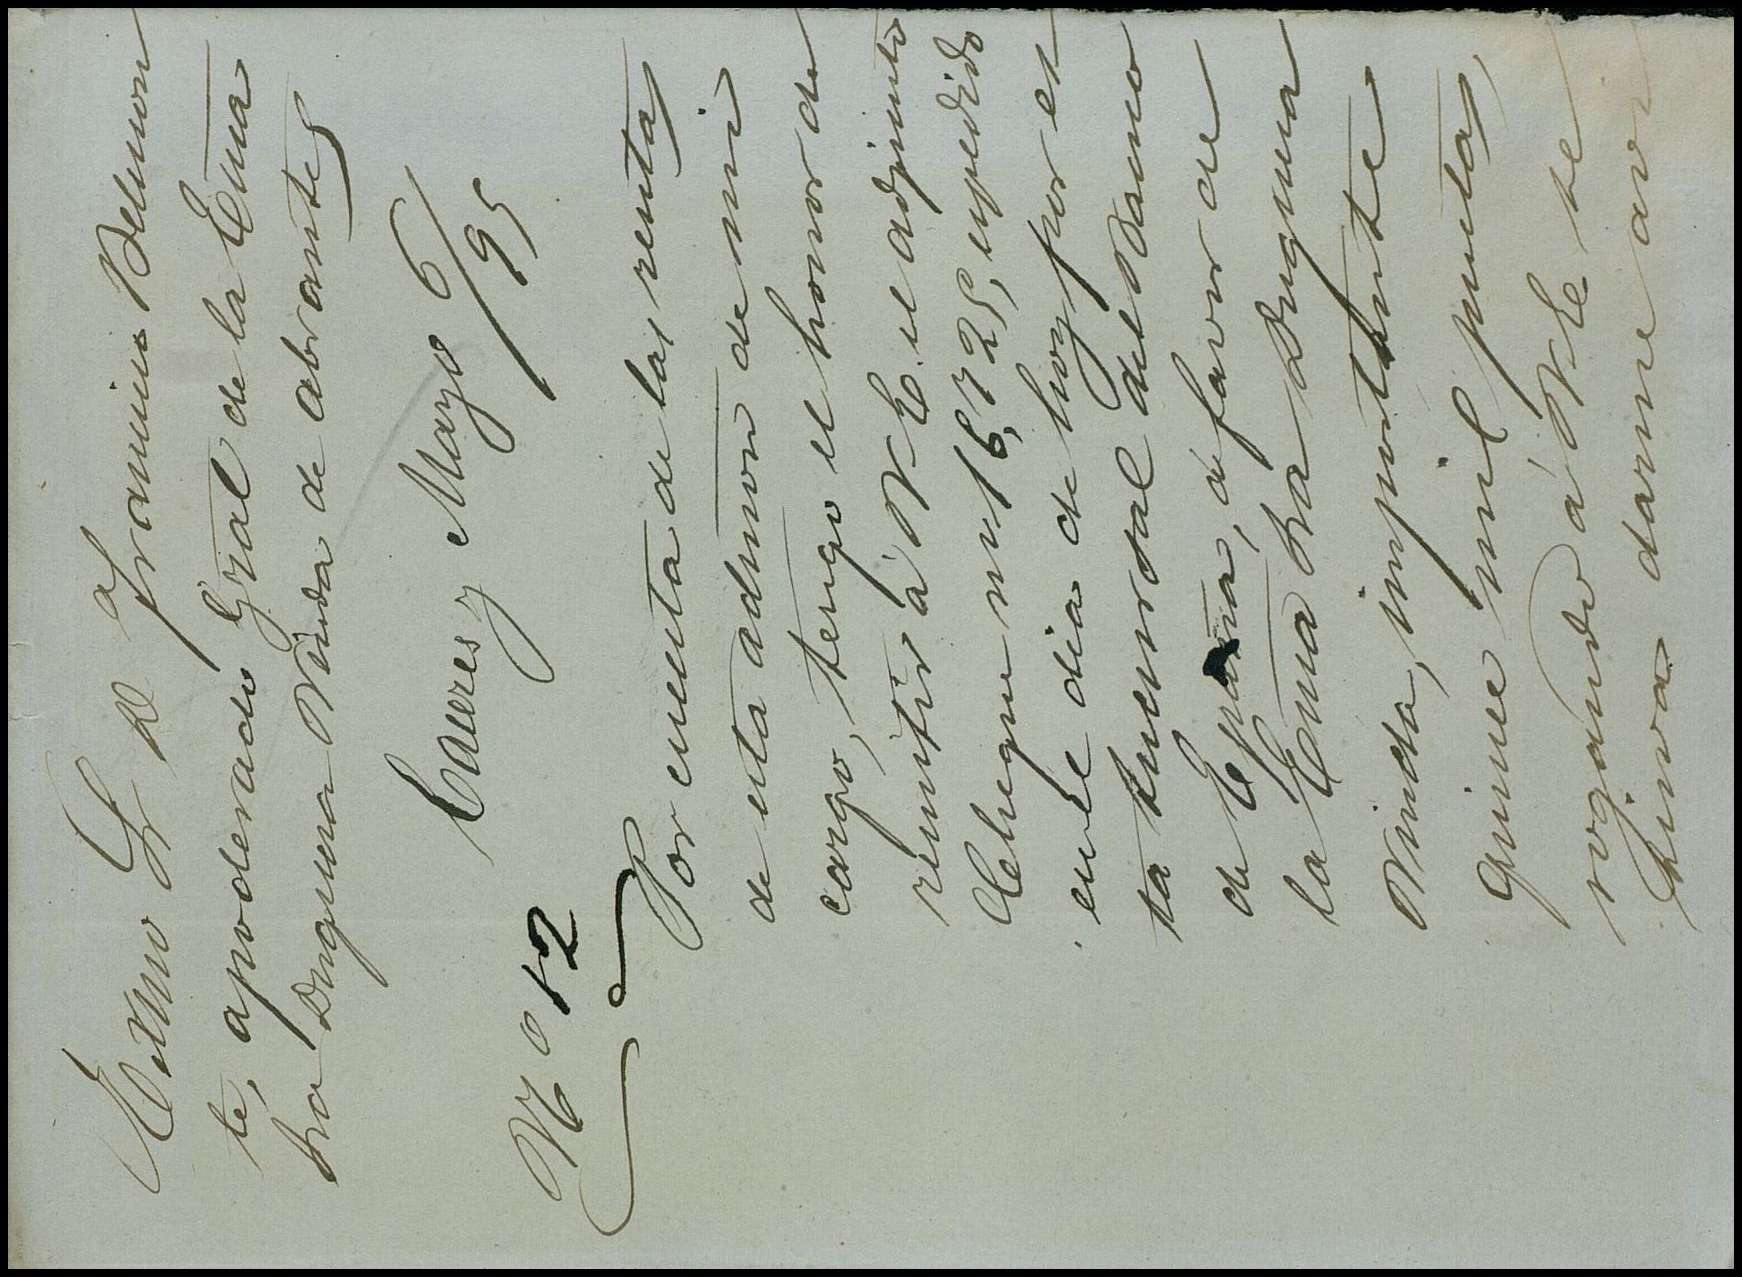 Excmo Sr D Francisco Belmon
te, apoderado Gral de la Excma
Sra Duquesa Viuda de Abrantes
Caceres y Mayo 6/95
No 12
Por cuenta de las rentas
de esta admon de mi
cargo, tengo el honor de
remitir á V E el adjunto
Cheque nu 16,725, expedido
en el dia de hoy por es
ta sucursal del Banco
de España, á favor de
la Excma Sra Duquesa
Viuda, importante
quince mil pesetas,
rogando á V E se
sirva darme avi